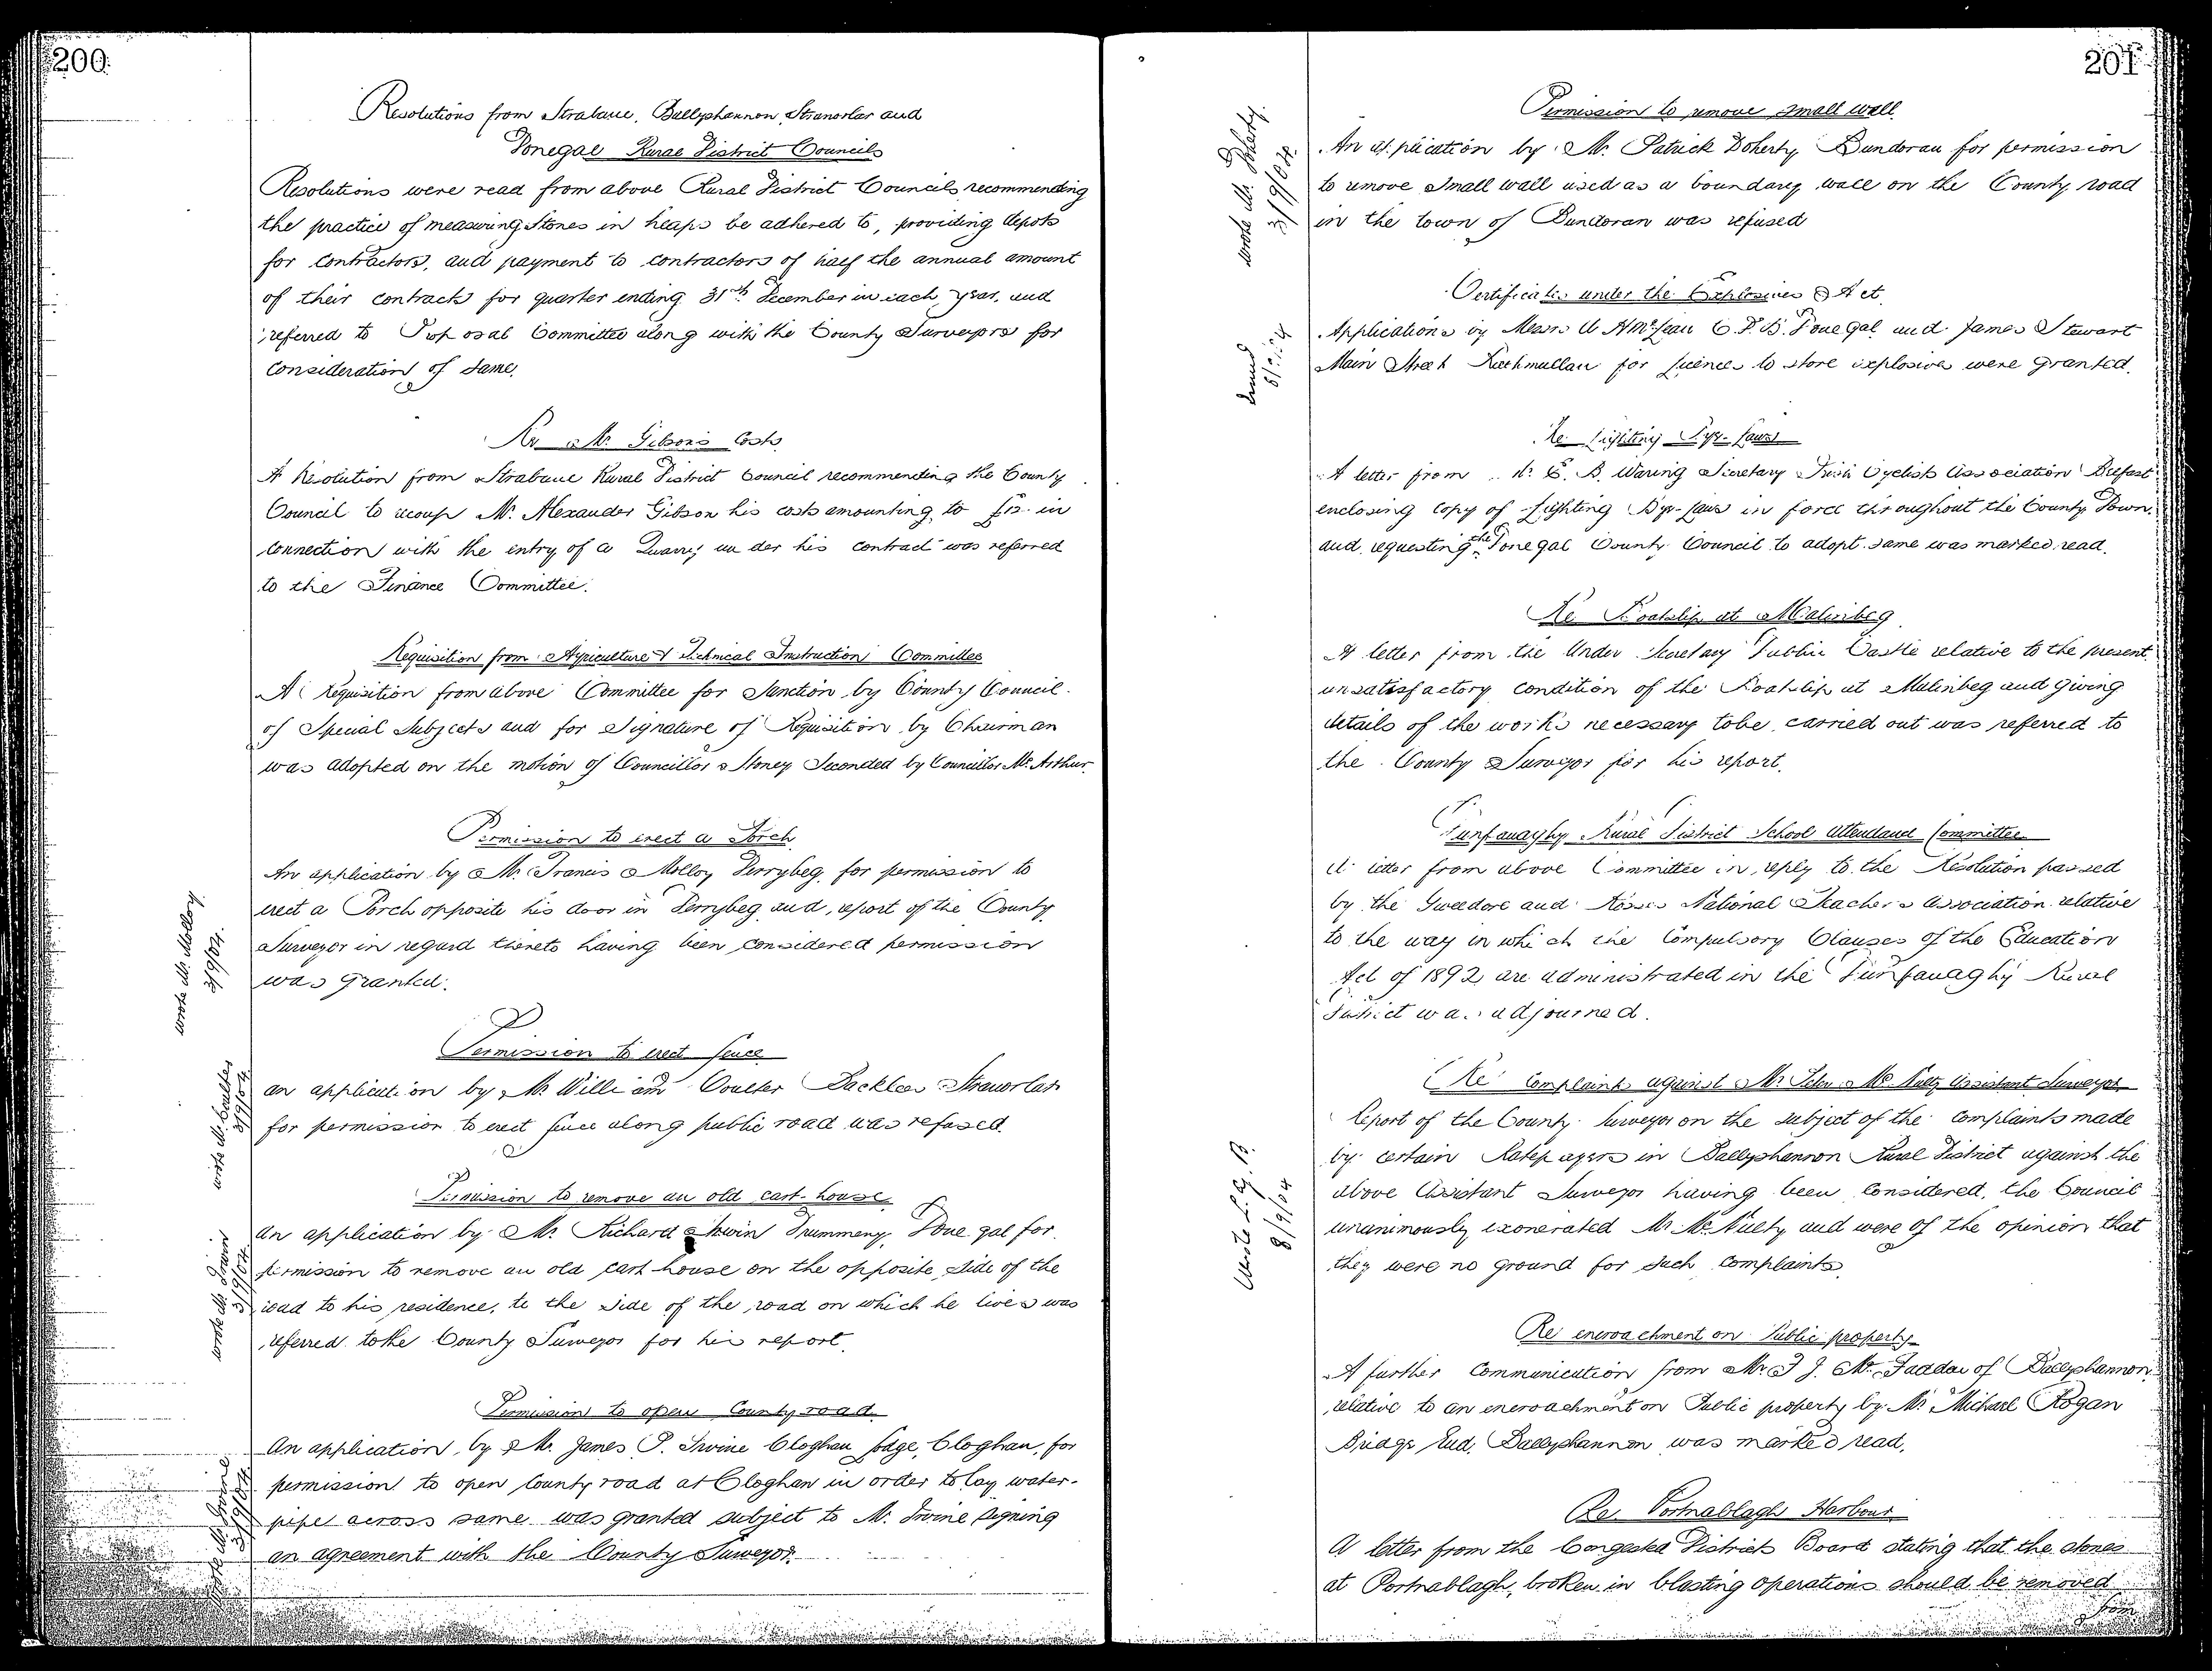 200
Resolutions from Strabane, Ballyshannon, Stranorlar and
Donegal Rural District Councils
Resolutions were read from above Rural District Councils recommending
the practice of measuring Stones in heaps be adhered to, providing depots
for contractors, and payment to contractors of half the annual amount
of their contracts for quarter ending 31st December in each year, and
referred to Proposal Committee along with the County Surveyors for
consideration of same.
Re Mr. Gibson's Costs
A Resolution from Strabane Rural District Council recommending the County
Council to recoup Mr. Alexander Gibson his costs amounting to in
connection with the entry of a Quarry under his contract was referred
to the Finance Committee.
Requisition from Agriculture & Technical Instruction Committee
A Requisition from above Committee for Sanction by County Council
of Special Subjects and for Signature of Requisition by Chairman
was adopted on the motion of Councillor Stoney Seconded by Councillor McArthur.
Permission to erect a Porch
An application by Mr. Francis Molloy Derrybeg, for permission to
erect a Porch opposite his door in Derrybeg and, report of the County
Surveyor in regard thereto having been considered permission
was granted.
wrote Mr. Molloy
3/9/04.
Permission to erect fence
an application by Mr. William Coulter Stranorlar
for permission to erect fence along public road was refused.
wrote Mr. Coulter
3/9/04.
Permission to remove an old cart-house
An application by Mr. Richard Irwin Drummeny, Donegal for
permission to remove an old cart house on the opposite side of the
road to his residence, to the side of the road on which he lives was
referred to the County Surveyor for his report.
wrote Mr. Irwin
3/9/04.
Permission to open County road
An application, by Mr. James P. Irvine Cloghan Lodge, Cloghan, for
permission to open County road at Cloghan in order to lay water-
pipe across same was granted subject to Mr. Irvine signing
an agreement with the County Surveyor.
wrote Mr. Irvine
3/9/04.
201
Permission to remove small wall
An application by Mr. Patrick Doherty, Bundoran for permission
to remove small wall used as a boundary wall on the County road
in the town of Bundoran was refused
wrote Mr. Doherty.
3/9/04.
Certificates under the Explosives Act.
Applications by Messrs Donegal and James Stewart
Main Street Rathmullan for licences to store explosives were granted.
Issued
Re Lighting Bye-Laws
A letter from Mr. E. B. Waring Secretary Irish Cyclists Association Belfast
enclosing copy of Lighting Bye-Laws in force throughout the County Down,
and requesting the Donegal County Council to adopt same was marked read.
Re Boatslip at Malinbeg
A letter from the Under Secretary Dublin Castle relative to the present
unsatisfactory condition of the Boatslip at Malinbeg and giving
details of the works necessary to be carried out was referred to
the County Surveyor for his report.
Dunfanaghy Rural District School Attendance Committee
A letter from above Committee in reply to the Resolution passed
by the Gweedore and Rosses National Teachers Association relative
to the way in which the Compulsory Clauses of the Education
Act of 1892 are administrated in the Dunfanaghy Rural
District was adjourned.
Re Complaints against Mr. John McNulty Assistant Surveyor
Report of the County Surveyor on the subject of the complaints made
by certain Ratepayers in Ballyshannon Rural District against the
above Assistant Surveyor having been considered, the Council
unanimously exonerated Mr. McNulty and were of the opinion that
they were no ground for such complaints.
Wrote L.G.B.
8/9/04
Re encroachment on Public property
A further communication from Mr. J. J. McFadden of Ballyshannon
relative to an encroachment on Public property by Mr. Michael Rogan
Bridge End, Ballyshannon was marked read.
Re Portnablagh Harbour
A letter from the Congested Districts Board stating that the stones
at Portnablagh, broken in blasting operations should be removed
from